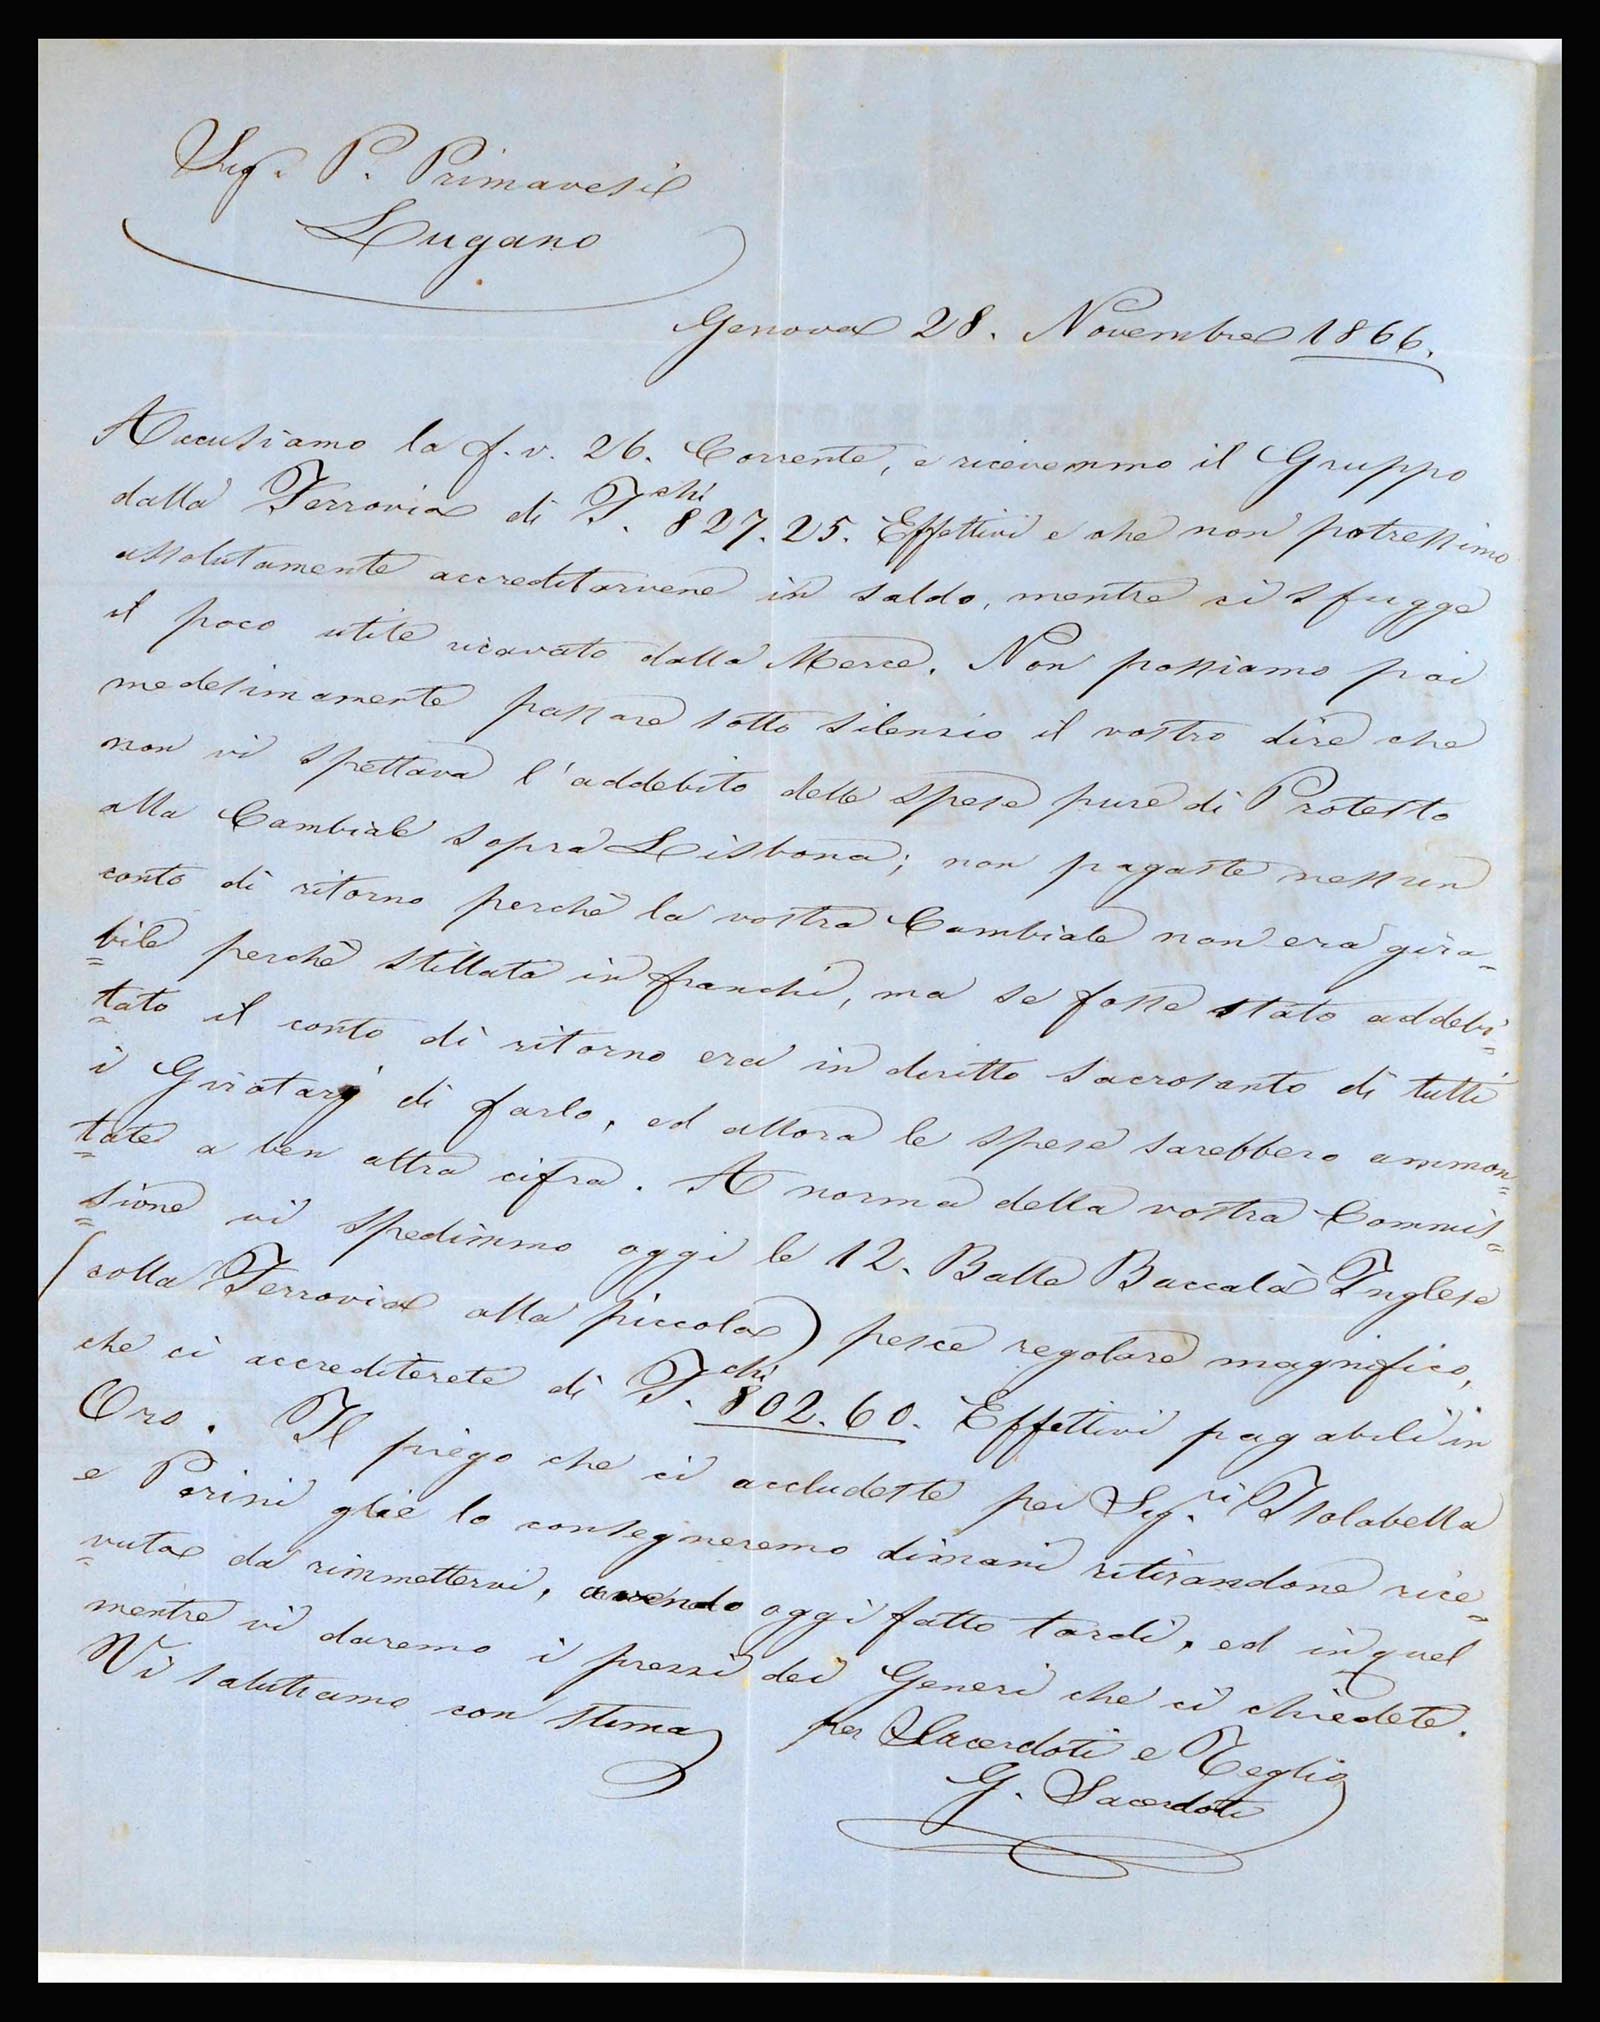 Sig.r P. Primavesi
Lugano
Genova 28. Novembre 1866.
Accusiamo la f. v. 26. Corrente, e ricevemmo il Gruppo
dalla Ferrovia di F.chi 827.25. Effettivi e che non potressimo
assolutamente accreditarvene in saldo, mentre ci sfugge
il poco utile ricavato dalla Merce. Non possiamo poi
medesimamente passare sotto silenzio il vostro dire che
non vi spettava l'addebito delle spese pure di Protesto
alla Cambiale sopra Lisbona; non pagaste nessun
conto di ritorno perchè la vostra Cambiale non era gira=
=bile perchè stillata in franchi, ma se fosse stato addebi=
=tato il conto di ritorno era in diritto sacrosanto di tutti
i Giratarj di farlo, ed allora le spese sarebbero ammon=
=tate a ben altra cifra. A norma della vostra Commis=
=sione vi spedimmo oggi le 12. Balle Baccalà Inglese
(colla Ferrovia alla piccola) pesce regolare magnifico,
che ci accrediterete di F.chi 802.60. Effettivi pagabili in
Oro. Il piego che ci accludeste pei Sig.ri Isolabella
e Porini glie lo consegneremo dimani ritirandone rice=
=vuta da rimmettervi, avendo oggi fatto tardi, ed in quel
mentre vi daremo i prezzi dei Generi che ci chiedete.
Vi salutiamo con stima
per Sacerdoti e Teglio
G. Sacerdoti